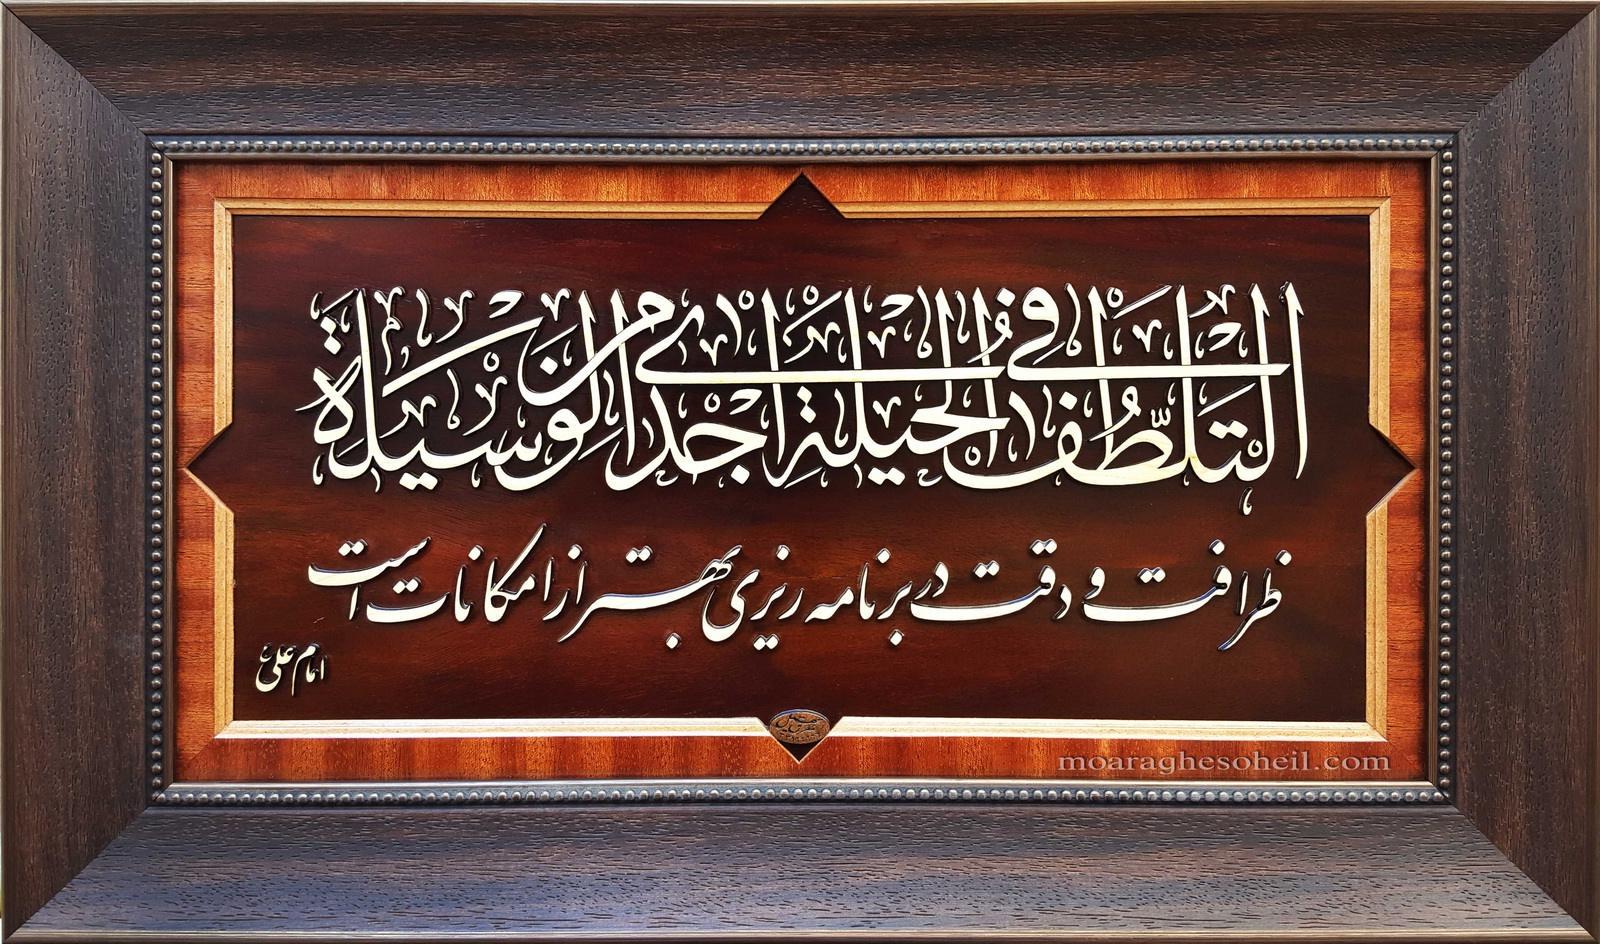 التَلَطُّفُ فِى الحيلَةِ اَجْدى مِنَ الوَسيلَةِ
ظرافت و دقت در برنامه ریزی بهتر از امکانات است
امام علی ع
moaraghesoheil.com